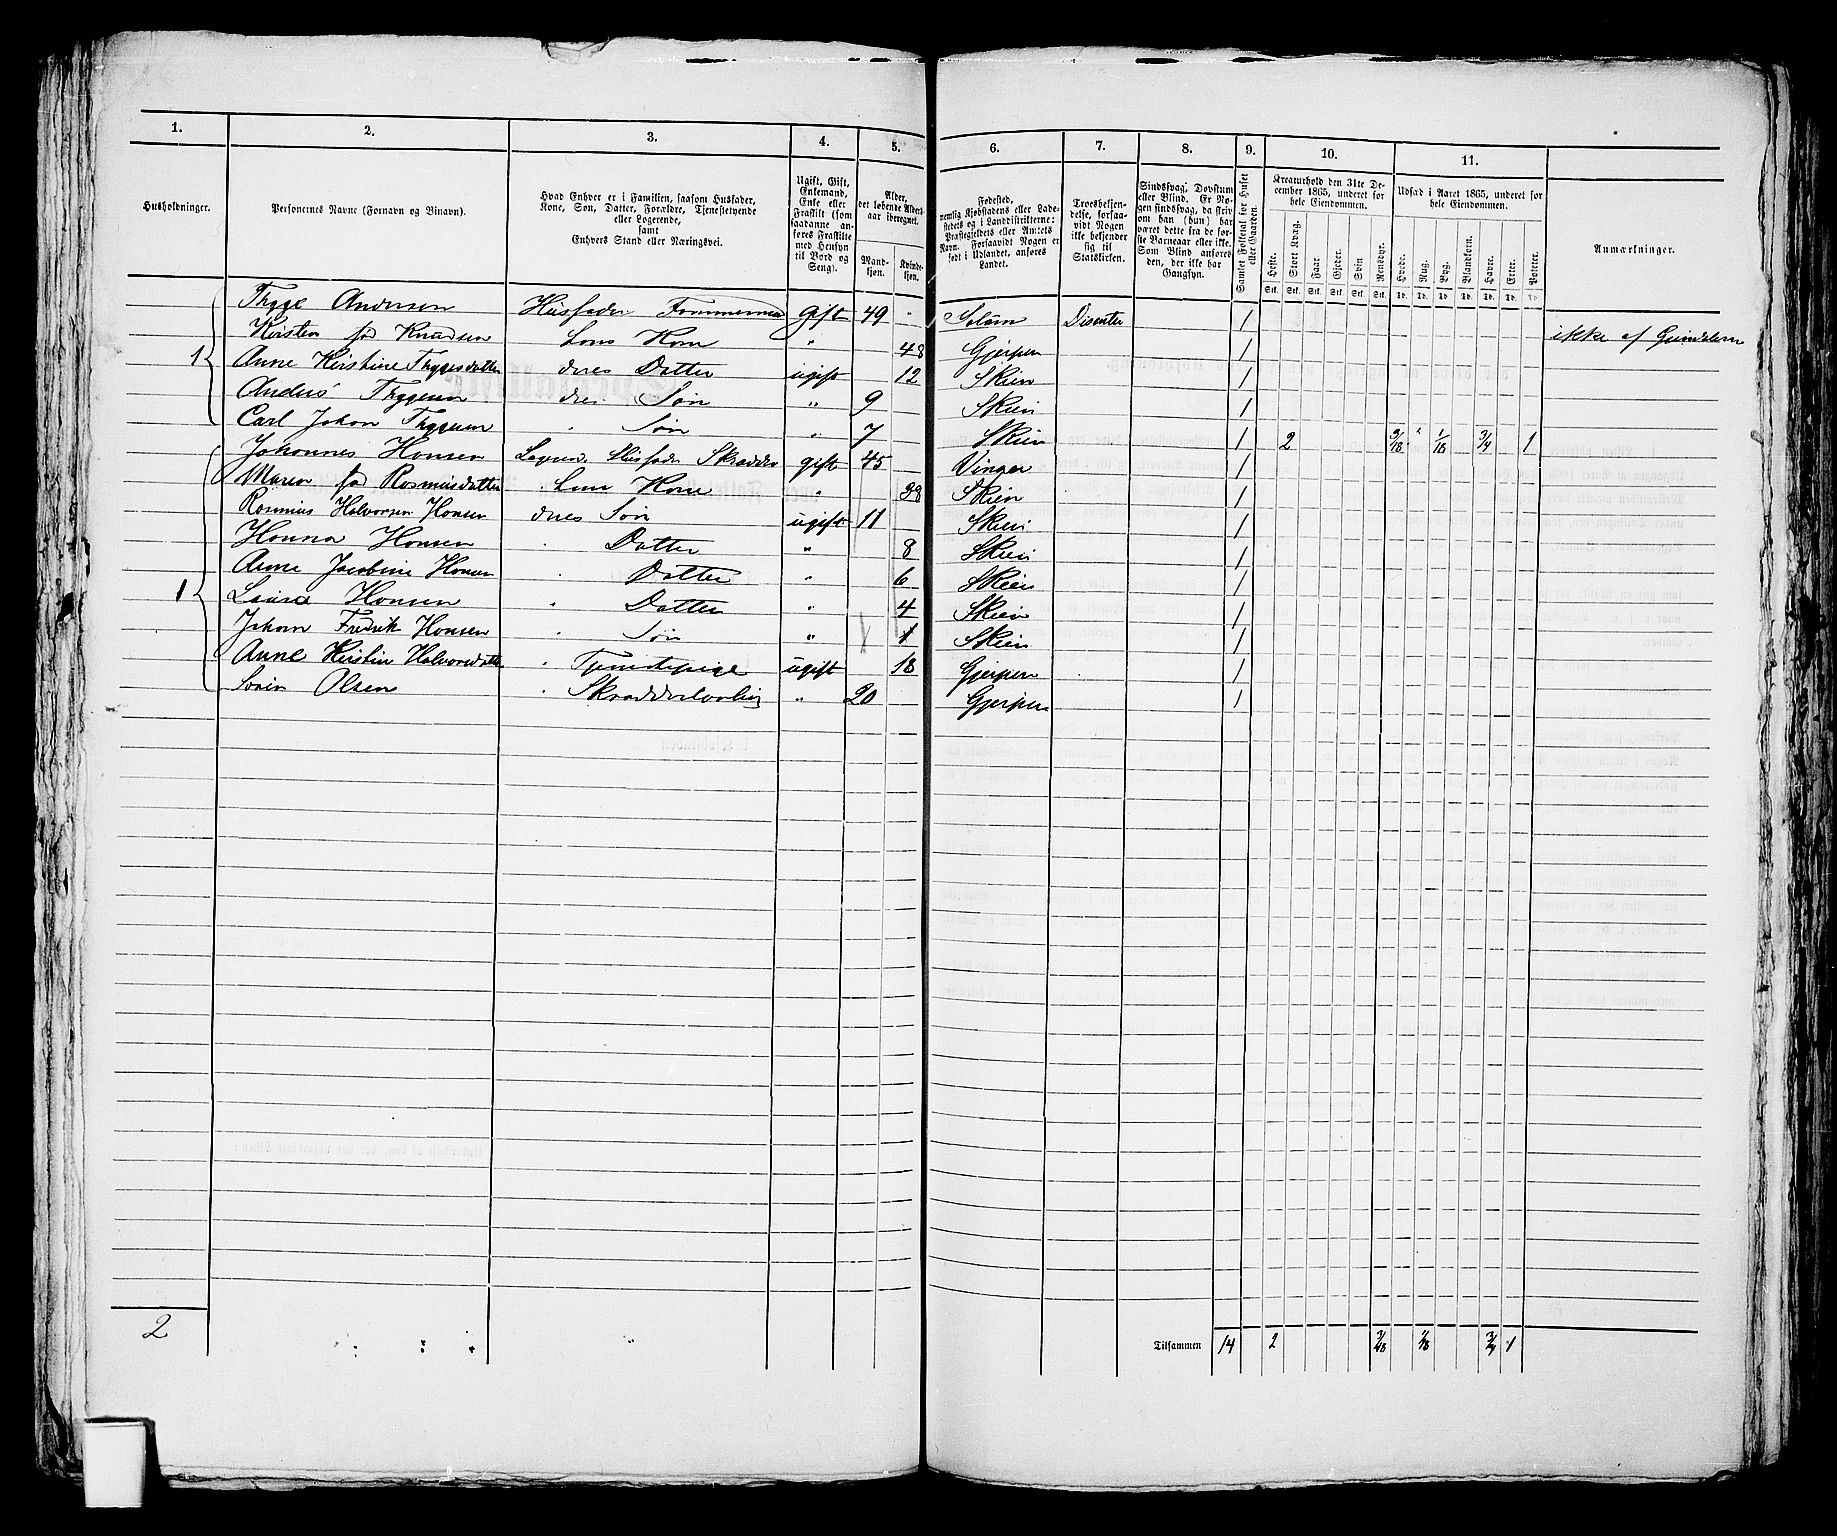 1. 2. 3. 4. 5. 6. 7. 8. 9. 10. 11.
Husholdninger.
Personernes Navne (Fornavn og Binavn).
Hvad Enhver er i Familien, saasom Husfader,
Kone, Søn, Datter, Forældre, Tjenestetyende
eller Logerende,
samt
Enhvers Stand eller Næringsvei.
Ugift, Gift,
Enkemand,
Enke eller
Fraskilt (som
saadanne an-
føres Fraskilte
med Hensyn
til Bord og
Seng).
Alder,
det løbende Alders-
aar iberegnet.
Mand-
kjøn.
Kvinde-
kjøn.
Fødested,
nemlig Kjøbstadens eller Lade-
stedets og i Landdistrikterne:
Præstegjeldets eller Amtets
Navn. Forsaavidt Nogen er
født i Udlandet, anføres
Landet.
Troesbekjen-
delse, forsaa-
vidt Nogen
ikke bekjender
sig til
Statskirken.
Sindssvag, Døvstum
eller Blind. Er No-
gen sindssvag, da skriv
om han (hun) har
været dette fra de før-
ste Barneaar eller ikke.
Som Blind anføres
den, der ikke har
Gangsyn.
Samlet Folketal for Huset
eller Gaarden.
Kreaturhold den 31te De-
cember 1865, underet for
hele Eiendommen.
Heste. Stort Kvæg. Faar. Gjeder. Svin Rensdyr.
Stk. Stk. Stk. Stk. Stk. Stk.
Udsæd i Aaret 1865, underet for
hele Eiendommen.
Hvede. Rug. Byg. Blandkorn. Havre. Erter. Poteter.
Td. Td. Td. Td. Td. Td. Td.
Anmærkninger.
1 Thyge Andersen Husfader gift 49 Solum Disenter 1 ikke af
Kirsten fød Knudsen Kone " 48 Gjerpen 1
Anne Kirstine Thygesdatter deres Datter ugift 12 Skien 1
Anders Thygesen deres Søn " 9 Skien 1
Carl Johan Thygesen " Søn " 7 Skien 1 2 3/48 " 1/18 3/4 1
1 Johannes Hansen Husfader Skrædder gift 45 Vinger 1
Maren fød Rasmusdatter " Kone " 38 Skien 1
Rasmus Halvorsen Hansen deres Søn ugift 11 Skien 1
Hanna Hansen " Datter " 8 Skien 1
Anne Jacobine Hansen " Datter " 6 Skien 1
Laura Hansen " Datter " 4 Skien 1
Johan Fredrik Hansen " Søn " 1 Skien 1
Anne Kirstin Halvorsdatter " Tjenestepige ugift 18 Gjerpen 1
Olsen " " 20 Gjerpen 1
2
Tilsammen 14 2 3/48 1/18 3/4 1